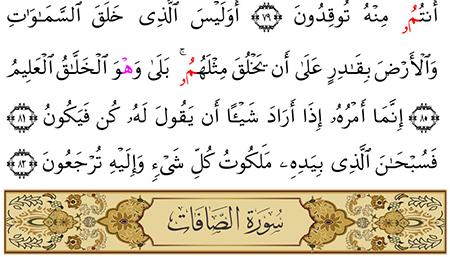 أَنتُمُۥ مِنْهُ تُوقِدُونَ ٧٩ أَوَلَيْسَ ٱلَّذِى خَلَقَ ٱلسَّمَٰوَٰتِ
وَٱلْأَرْضَ بِقَٰدِرٍ عَلَىٰ أَن يَخْلُقَ مِثْلَهُمُۥ ۚ بَلَىٰ وَهْوَ ٱلْخَلَّٰقُ ٱلْعَلِيمُ
٨٠ إِنَّمَا أَمْرُهُۥ إِذَا أَرَادَ شَيْـًٔا أَن يَقُولَ لَهُۥ كُن فَيَكُونُ ٨١
فَسُبْحَٰنَ ٱلَّذِى بِيَدِهِۦ مَلَكُوتُ كُلِّ شَىْءٍ وَإِلَيْهِ تُرْجَعُونَ ٨٢
سُورَةُ الصَّافَّاتِ